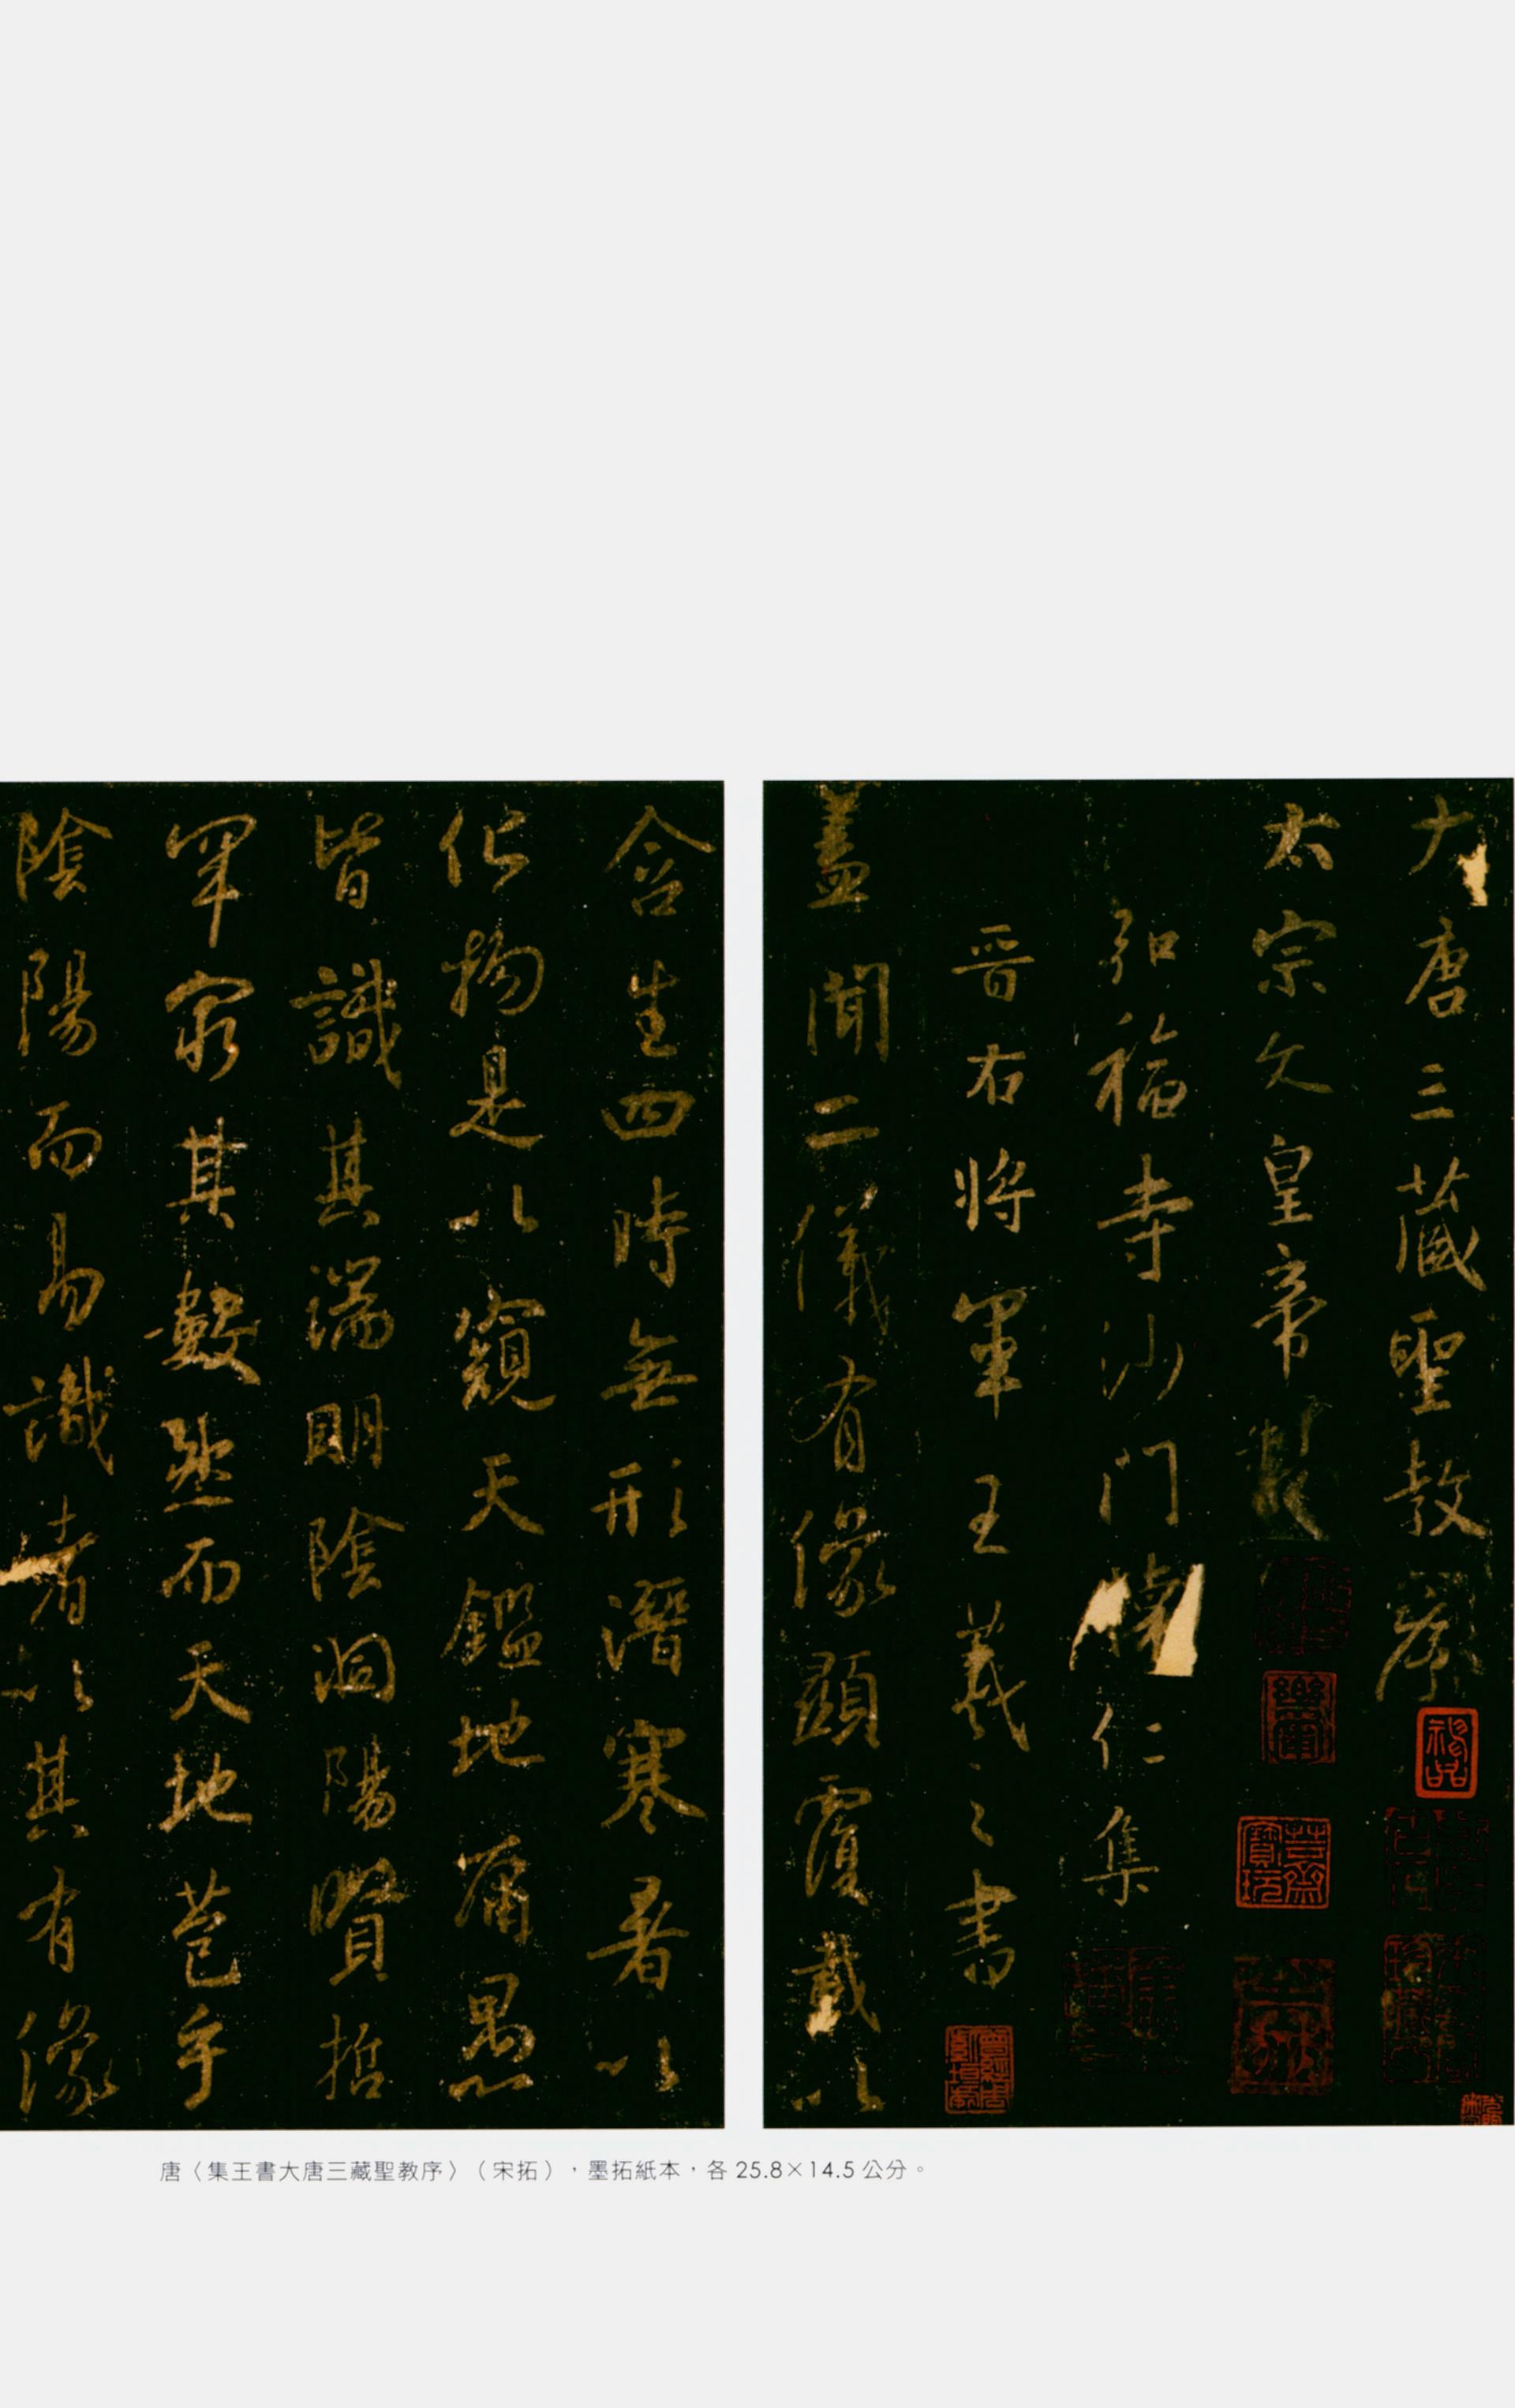 大唐三藏聖教序
太宗文皇帝製
弘福寺沙門懷仁集
晉右將軍王羲之書
蓋聞二儀有像顯覆載以
含生四時無形潛寒暑以
化物是以窺天鑑地庸愚
皆識其端明陰洞陽賢哲
罕窮其數然而天地苞乎
陰陽而易識者以其有像
唐〈集王書大唐三藏聖教序〉（宋拓），墨拓紙本，各 25.8×14.5 公分。